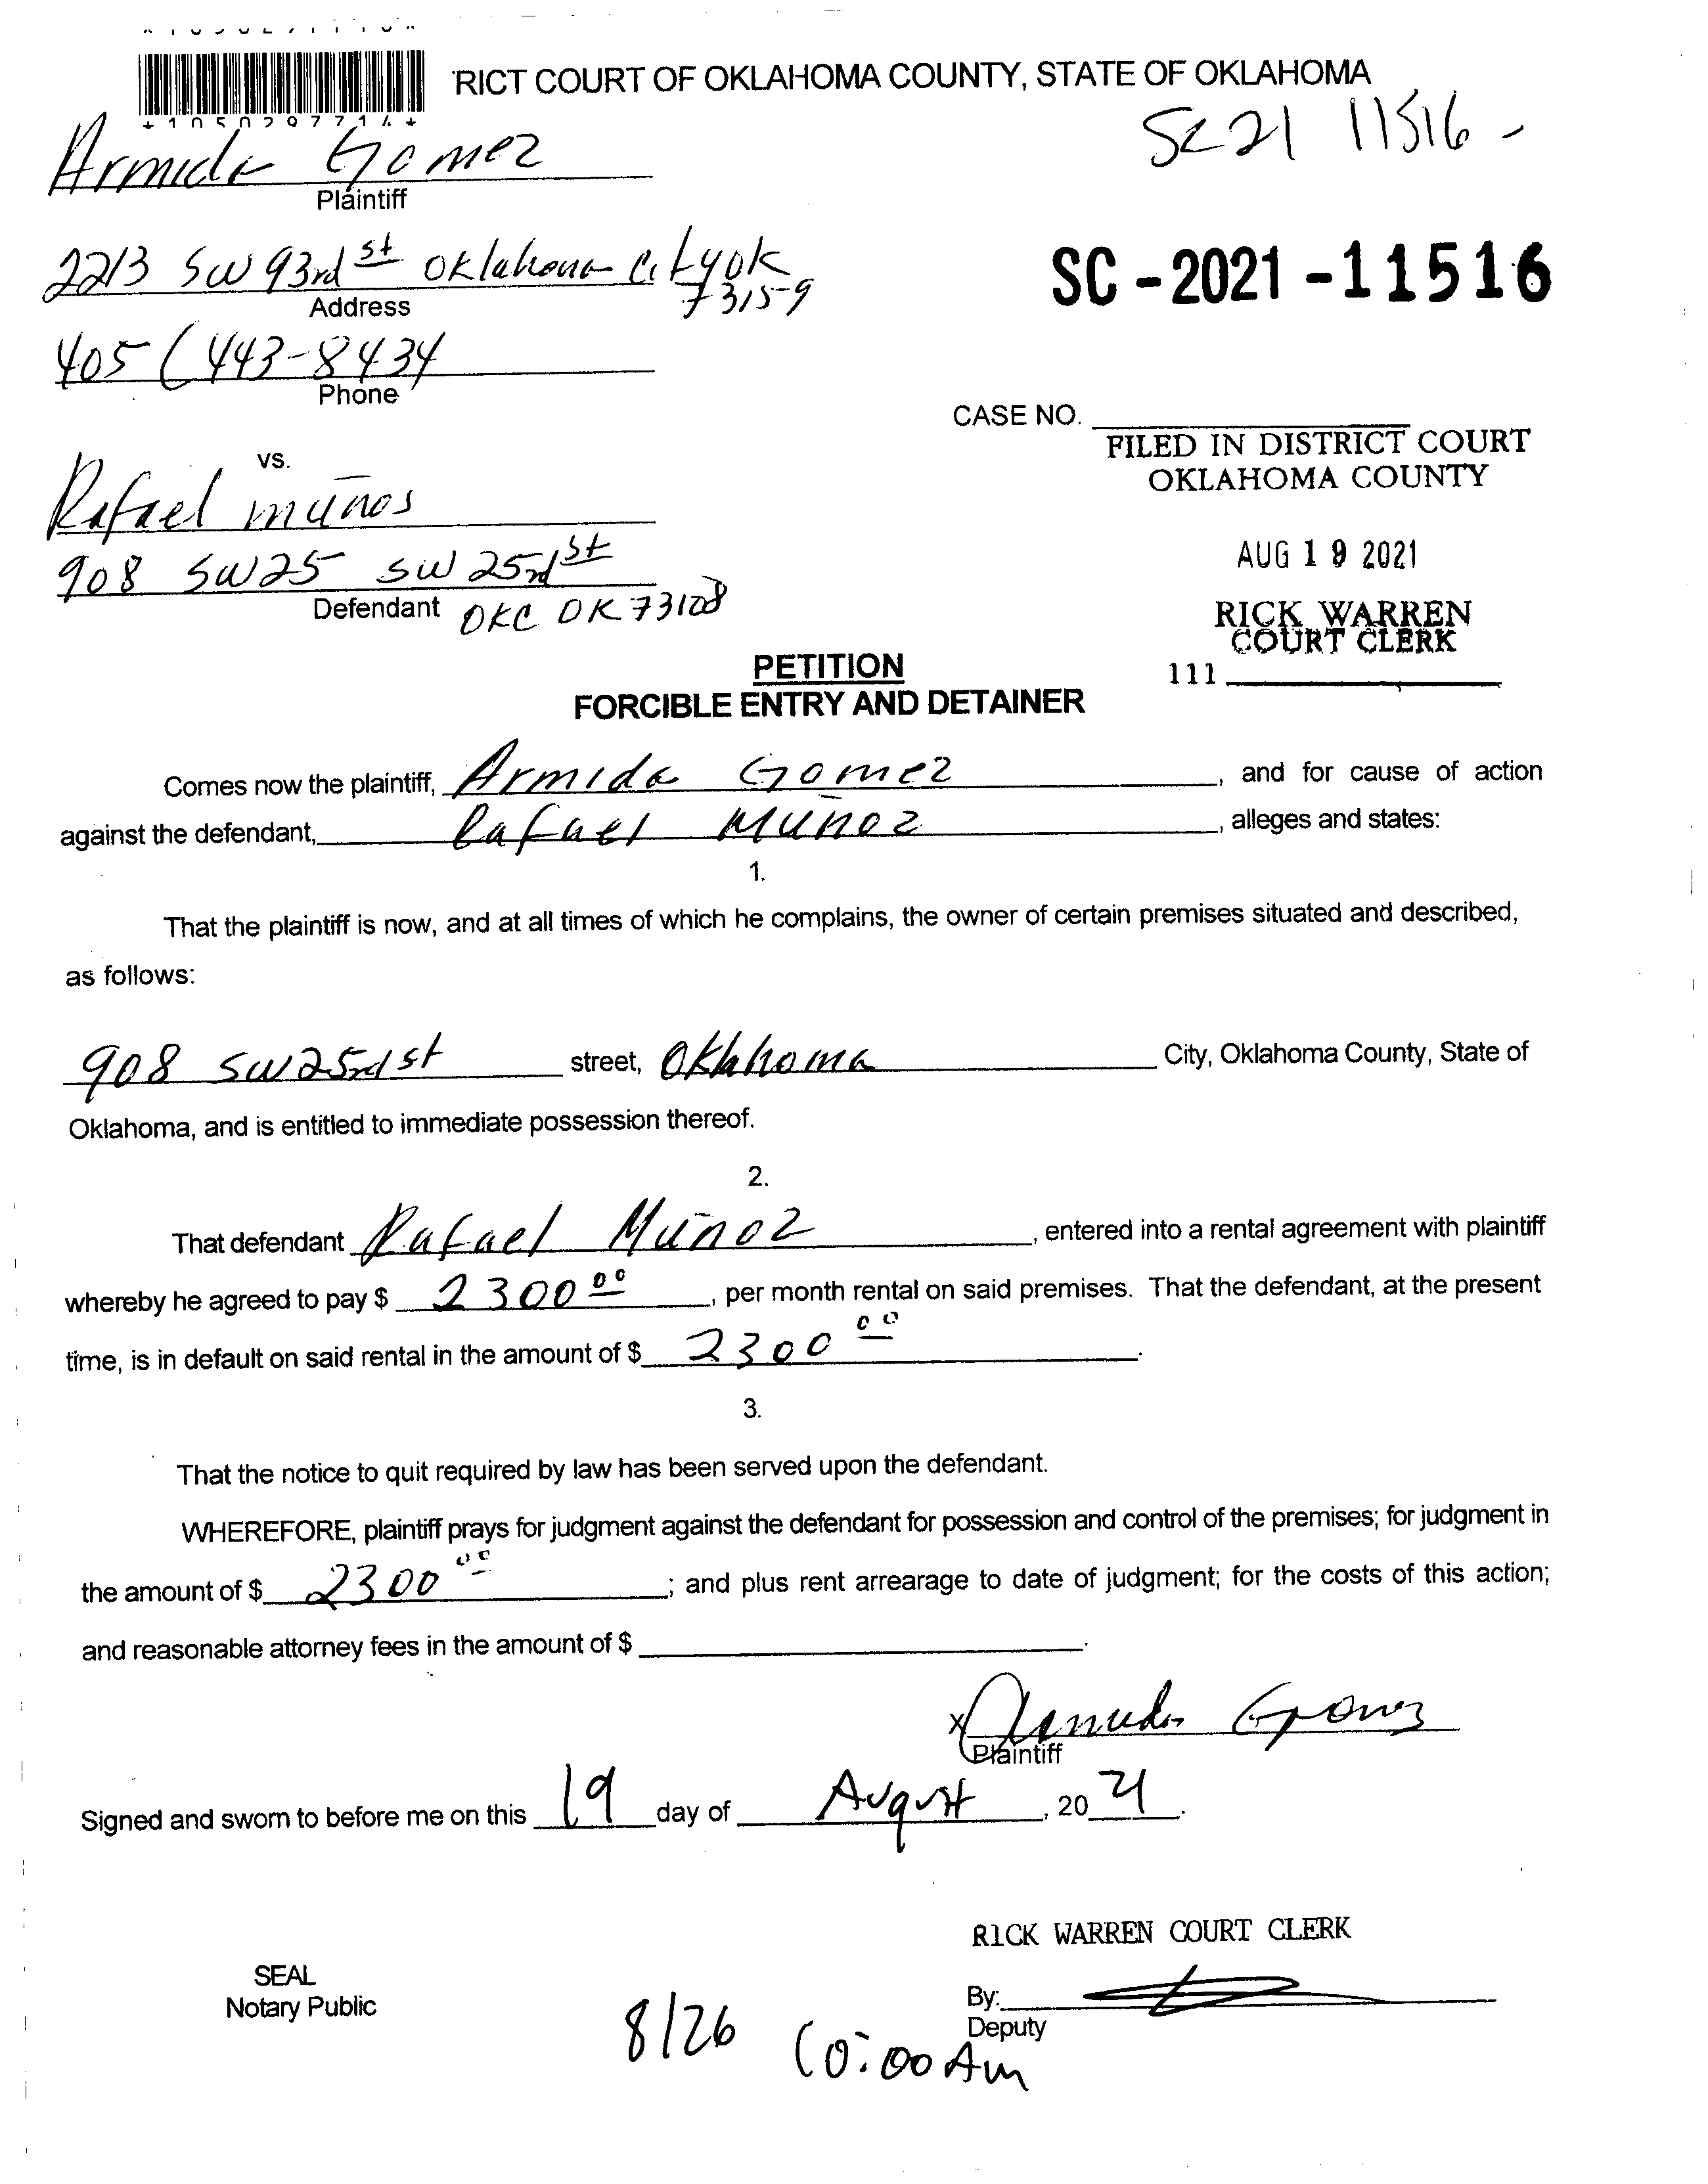 RICT COURT OF OKLAHOMA COUNTY, STATE OF OKLAHOMA
SC 21 11516 -
Armida Gomez
Plaintiff
SC - 2021 - 11516
2213 SW 93rd st Oklahoma City ok
73159
Address
405 ( 443-8434
Phone
CASE NO.
FILED IN DISTRICT COURT
OKLAHOMA COUNTY
vs.
Rafael muños
AUG 19 2021
908 SW25 SW 25rd st
Defendant OKC OK 73108
RICK WARREN
COURT CLERK
111
PETITION
FORCIBLE ENTRY AND DETAINER
Comes now the plaintiff, Armida Gomez, and for cause of action
against the defendant, Rafael Muñoz, alleges and states:
1.
That the plaintiff is now, and at all times of which he complains, the owner of certain premises situated and described,
as follows:
908 SW25rd st street, Oklahoma City, Oklahoma County, State of
Oklahoma, and is entitled to immediate possession thereof.
2.
That defendant Rafael Muñoz, entered into a rental agreement with plaintiff
whereby he agreed to pay $ 2300 00, per month rental on said premises. That the defendant, at the present
time, is in default on said rental in the amount of $ 2300 00.
3.
That the notice to quit required by law has been served upon the defendant.
WHEREFORE, plaintiff prays for judgment against the defendant for possession and control of the premises; for judgment in
the amount of $ 2300 00; and plus rent arrearage to date of judgment; for the costs of this action;
and reasonable attorney fees in the amount of $ .
X Armida Gomez
Plaintiff
Signed and sworn to before me on this 19 day of August, 20 21.
RICK WARREN COURT CLERK
SEAL
Notary Public
By:
Deputy
8/26 10:00 Am